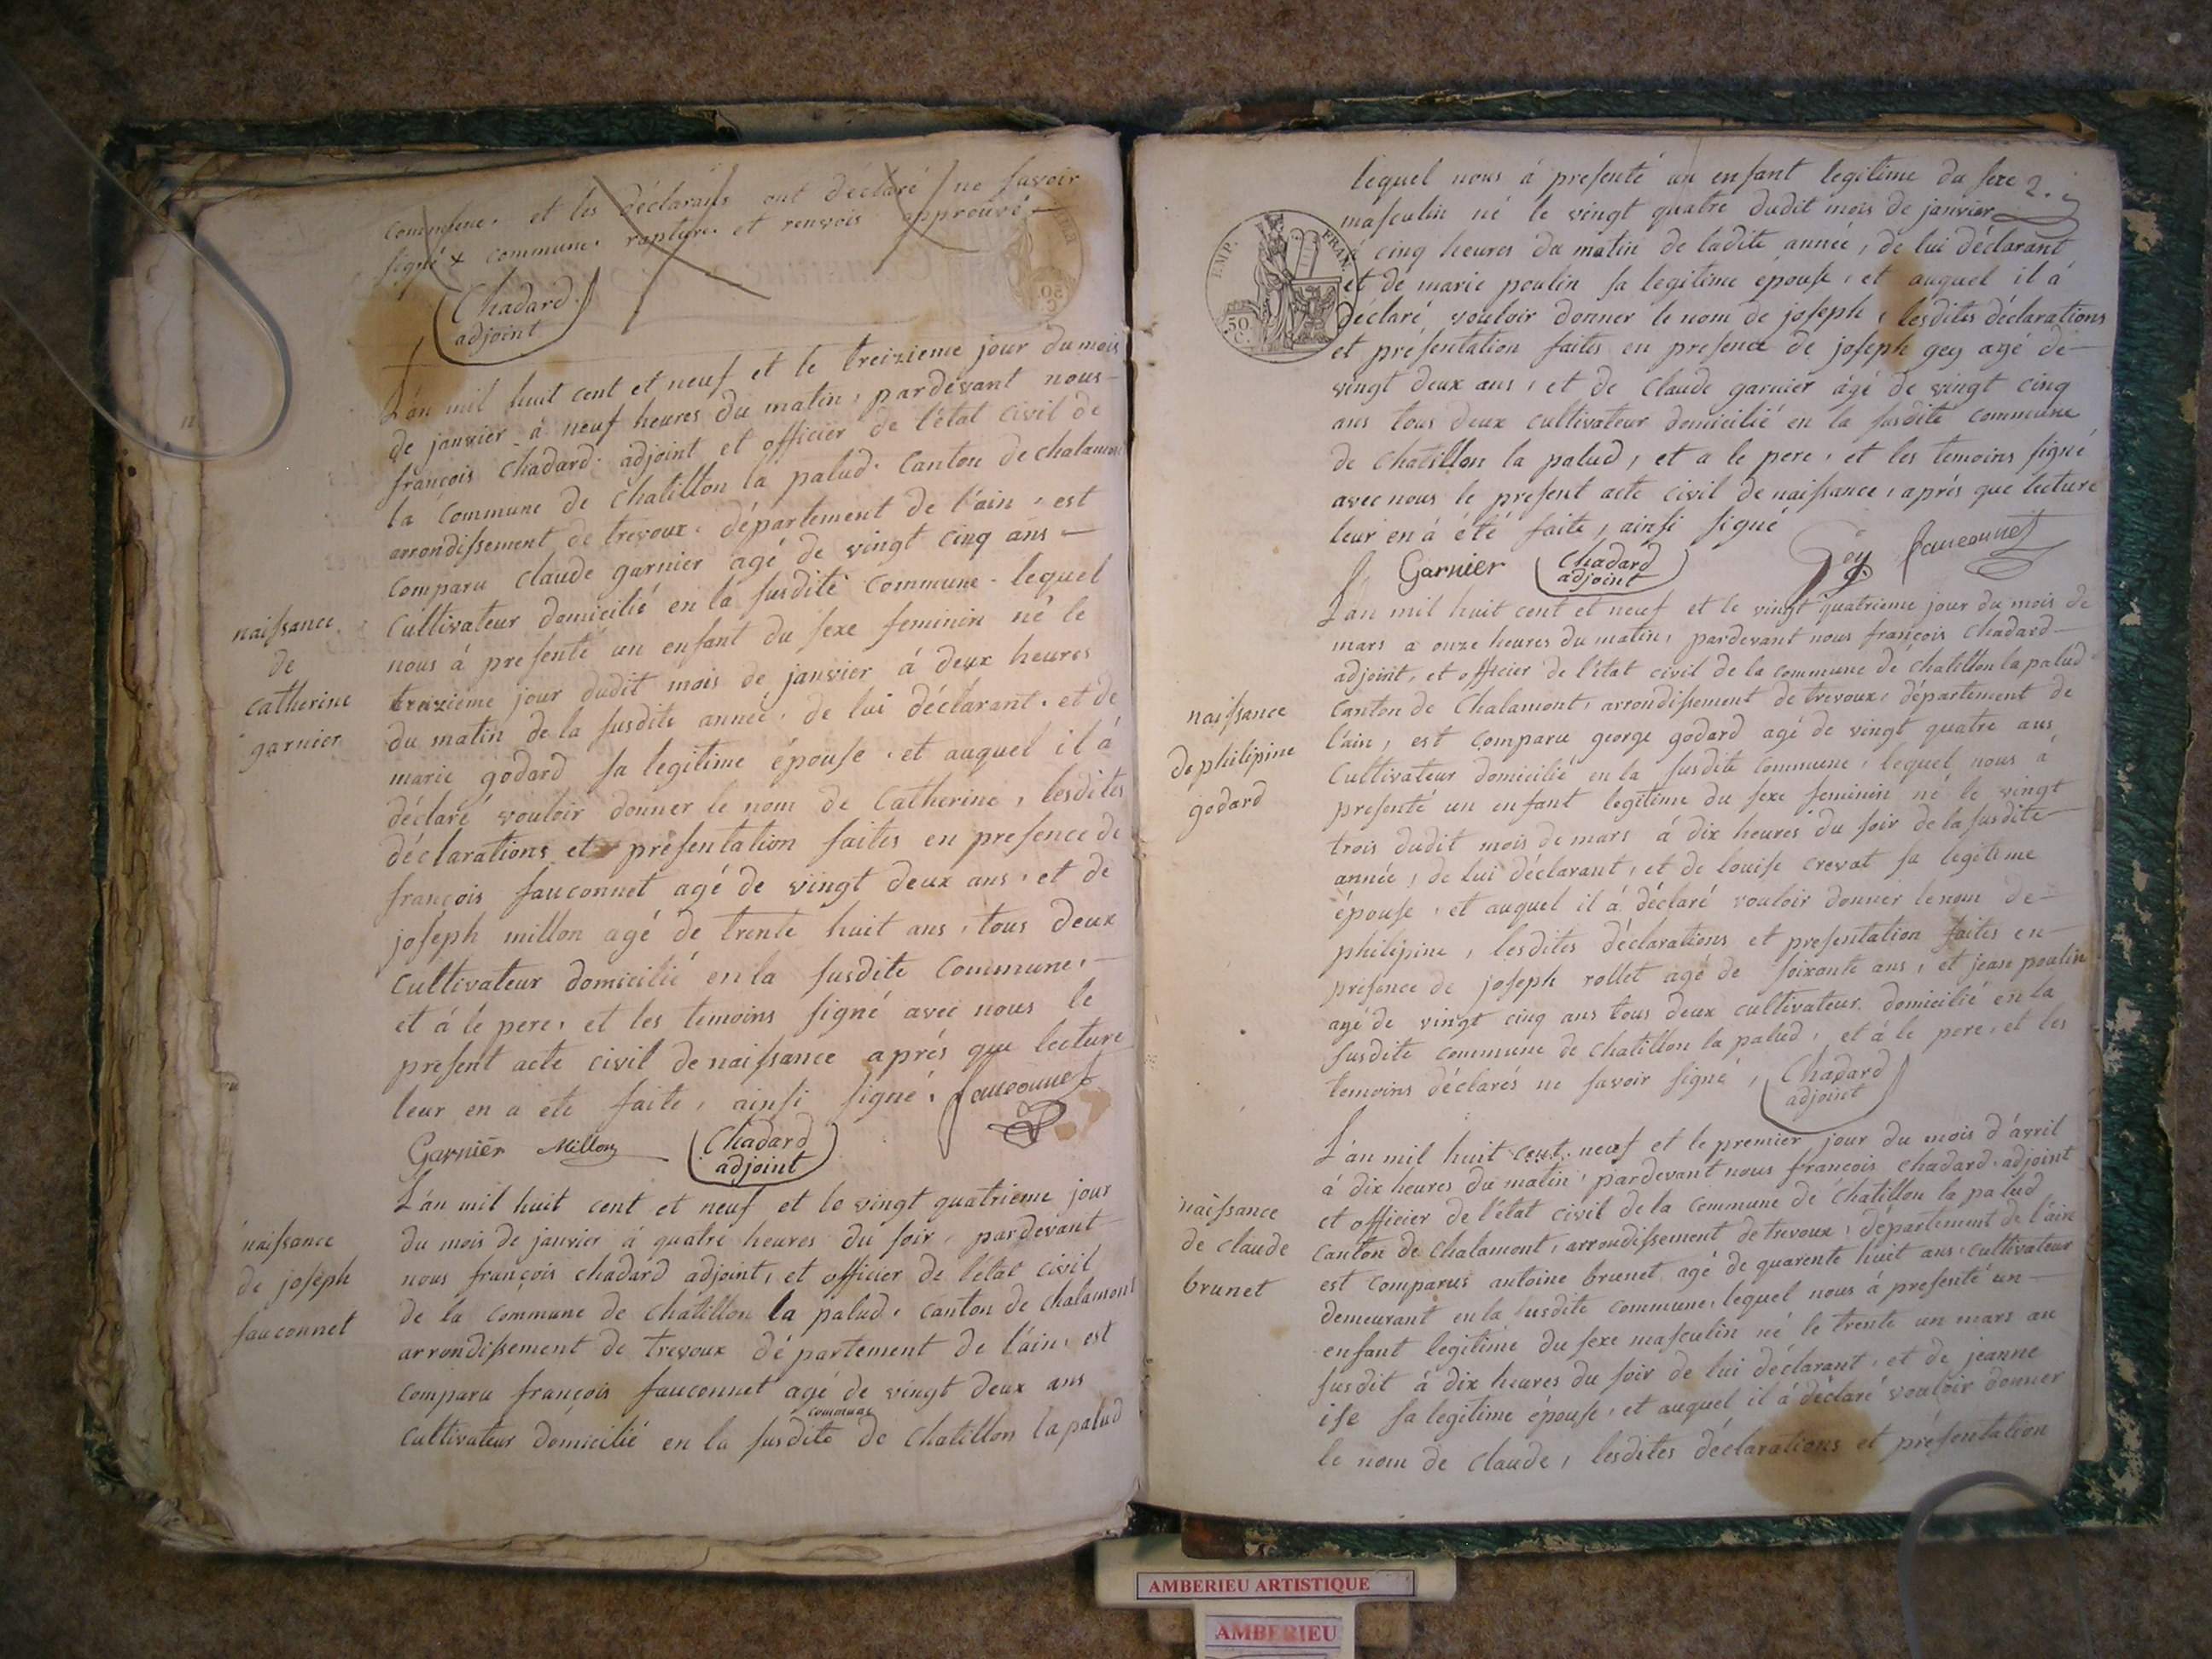 commune. et les déclarants ont déclaré ne savoir
signé x commune. rapture. et renvois approuvé
Chadard
adjoint
L'án mil huit cent et neuf et le treizieme jour du mois
de janvier à neuf heures du matin, pardevant nous
françois Chadard adjoint et officier de l'état civil de
la Commune de Chatillon la palud. Canton de chalamont
arrondissement de trevoux. département de l'ain, est
comparu Claude garnier agé de vingt cinq ans
Cultivateur domicilié en la susdite Commune. lequel
nous á presenté un enfant du sexe feminin né le
treizieme jour dudit mois de janvier á deux heures
du matin de la susdite année. de lui déclarant. et de
marie godard sa legitime épouse. et auquel il á
déclaré vouloir donner le nom de Catherine, lesdites
déclarations et présentation faites en presence de
françois fauconnet agé de vingt deux ans. et de
joseph millon agé de trente huit ans, tous deux
cultivateur domicilié en la susdite Commune.
et á le pere, et les temoins signé avec nous le
present acte civil de naissance aprés que lecture
leur en a été faite, ainsi signé. fauconnet
Garnier Millon Chadard
adjoint
naissance
de
catherine
garnier
L'án mil huit cent et neuf et le vingt quatrieme jour
du mois de janvier á quatre heures du soir, pardevant
nous françois chadard adjoint, et officier de l'état civil
de la commune de chatillon la palud, canton de chalamont
arrondissement de trevoux département de l'ain, est
comparu françois fauconnet agé de vingt deux ans
commune
cultivateur domicilié en la susdite de chatillon la palud
naissance
de joseph
fauconnet
lequel nous á presenté un enfant legitime du sexe 2.
masculin né le vingt quatre dudit mois de janvier
cinq heures du matin de ladite année, de lui déclarant
et de marie poulin sa legitime épouse, et auquel il á
déclaré vouloir donner le nom de joseph, lesdites déclarations
et présentation faites en presence de joseph gey agé de
vingt deux ans, et de Claude garnier ágé de vingt cinq
ans tous deux cultivateur domicilié en la susdite commune
de chatillon la palud, et a le pere, et les temoins signé
avec nous le present acte civil de naissance, aprés que lecture
leur en á été faite, ainsi signé
Garnier Chadard
adjoint Gey fauconnet
EMP. FRAN.
50
C.
L'án mil huit cent et neuf et le vingt quatrieme jour du mois de
mars a onze heures du matin, pardevant nous françois Chadard
adjoint, et officier de l'état civil de la commune de chatillon la palud
Canton de Chalamont, arrondissement de trevoux, département de
l'ain, est comparu george godard agé de vingt quatre ans
Cultivateur domicilié en la susdite commune, lequel nous a
presenté un enfant legitime du sexe feminin né le vingt
trois dudit mois de mars á dix heures du soir de la susdite
année, de lui déclarant, et de louise crevat sa legitime
épouse, et auquel il á déclaré vouloir donner le nom de
philipine, lesdites déclarations et presentation faites en
présence de joseph rollet agé de soixante ans, et jean poulin
agé de vingt cinq ans tous deux cultivateur domicilié en la
susdite commune de chatillon la palud, et á le pere, et les
temoins déclarés ne savoir signé, Chadard
adjoint
naissance
de philipine
godard
L'án mil huit cent neuf et le premier jour du mois d'ávril
á dix heures du matin, pardevant nous françois Chadard adjoint
et officier de l'état civil de la commune de Chatillon la palud
canton de Chalamont, arrondissement de trevoux, département de l'ain
est comparus antoine brunet agé de quarente huit ans, cultivateur
demeurant en la susdite commune, lequel nous á presenté un
enfant legitime du sexe masculin né le trente un mars an
susdit á dix heures du soir de lui déclarant, et de jeanne
ise sa legitime épouse, et auquel il á déclaré vouloir donner
le nom de claude, lesdites déclarations et présentation
naissance
de claude
brunet
AMBERIEU ARTISTIQUE
AMBERIEU